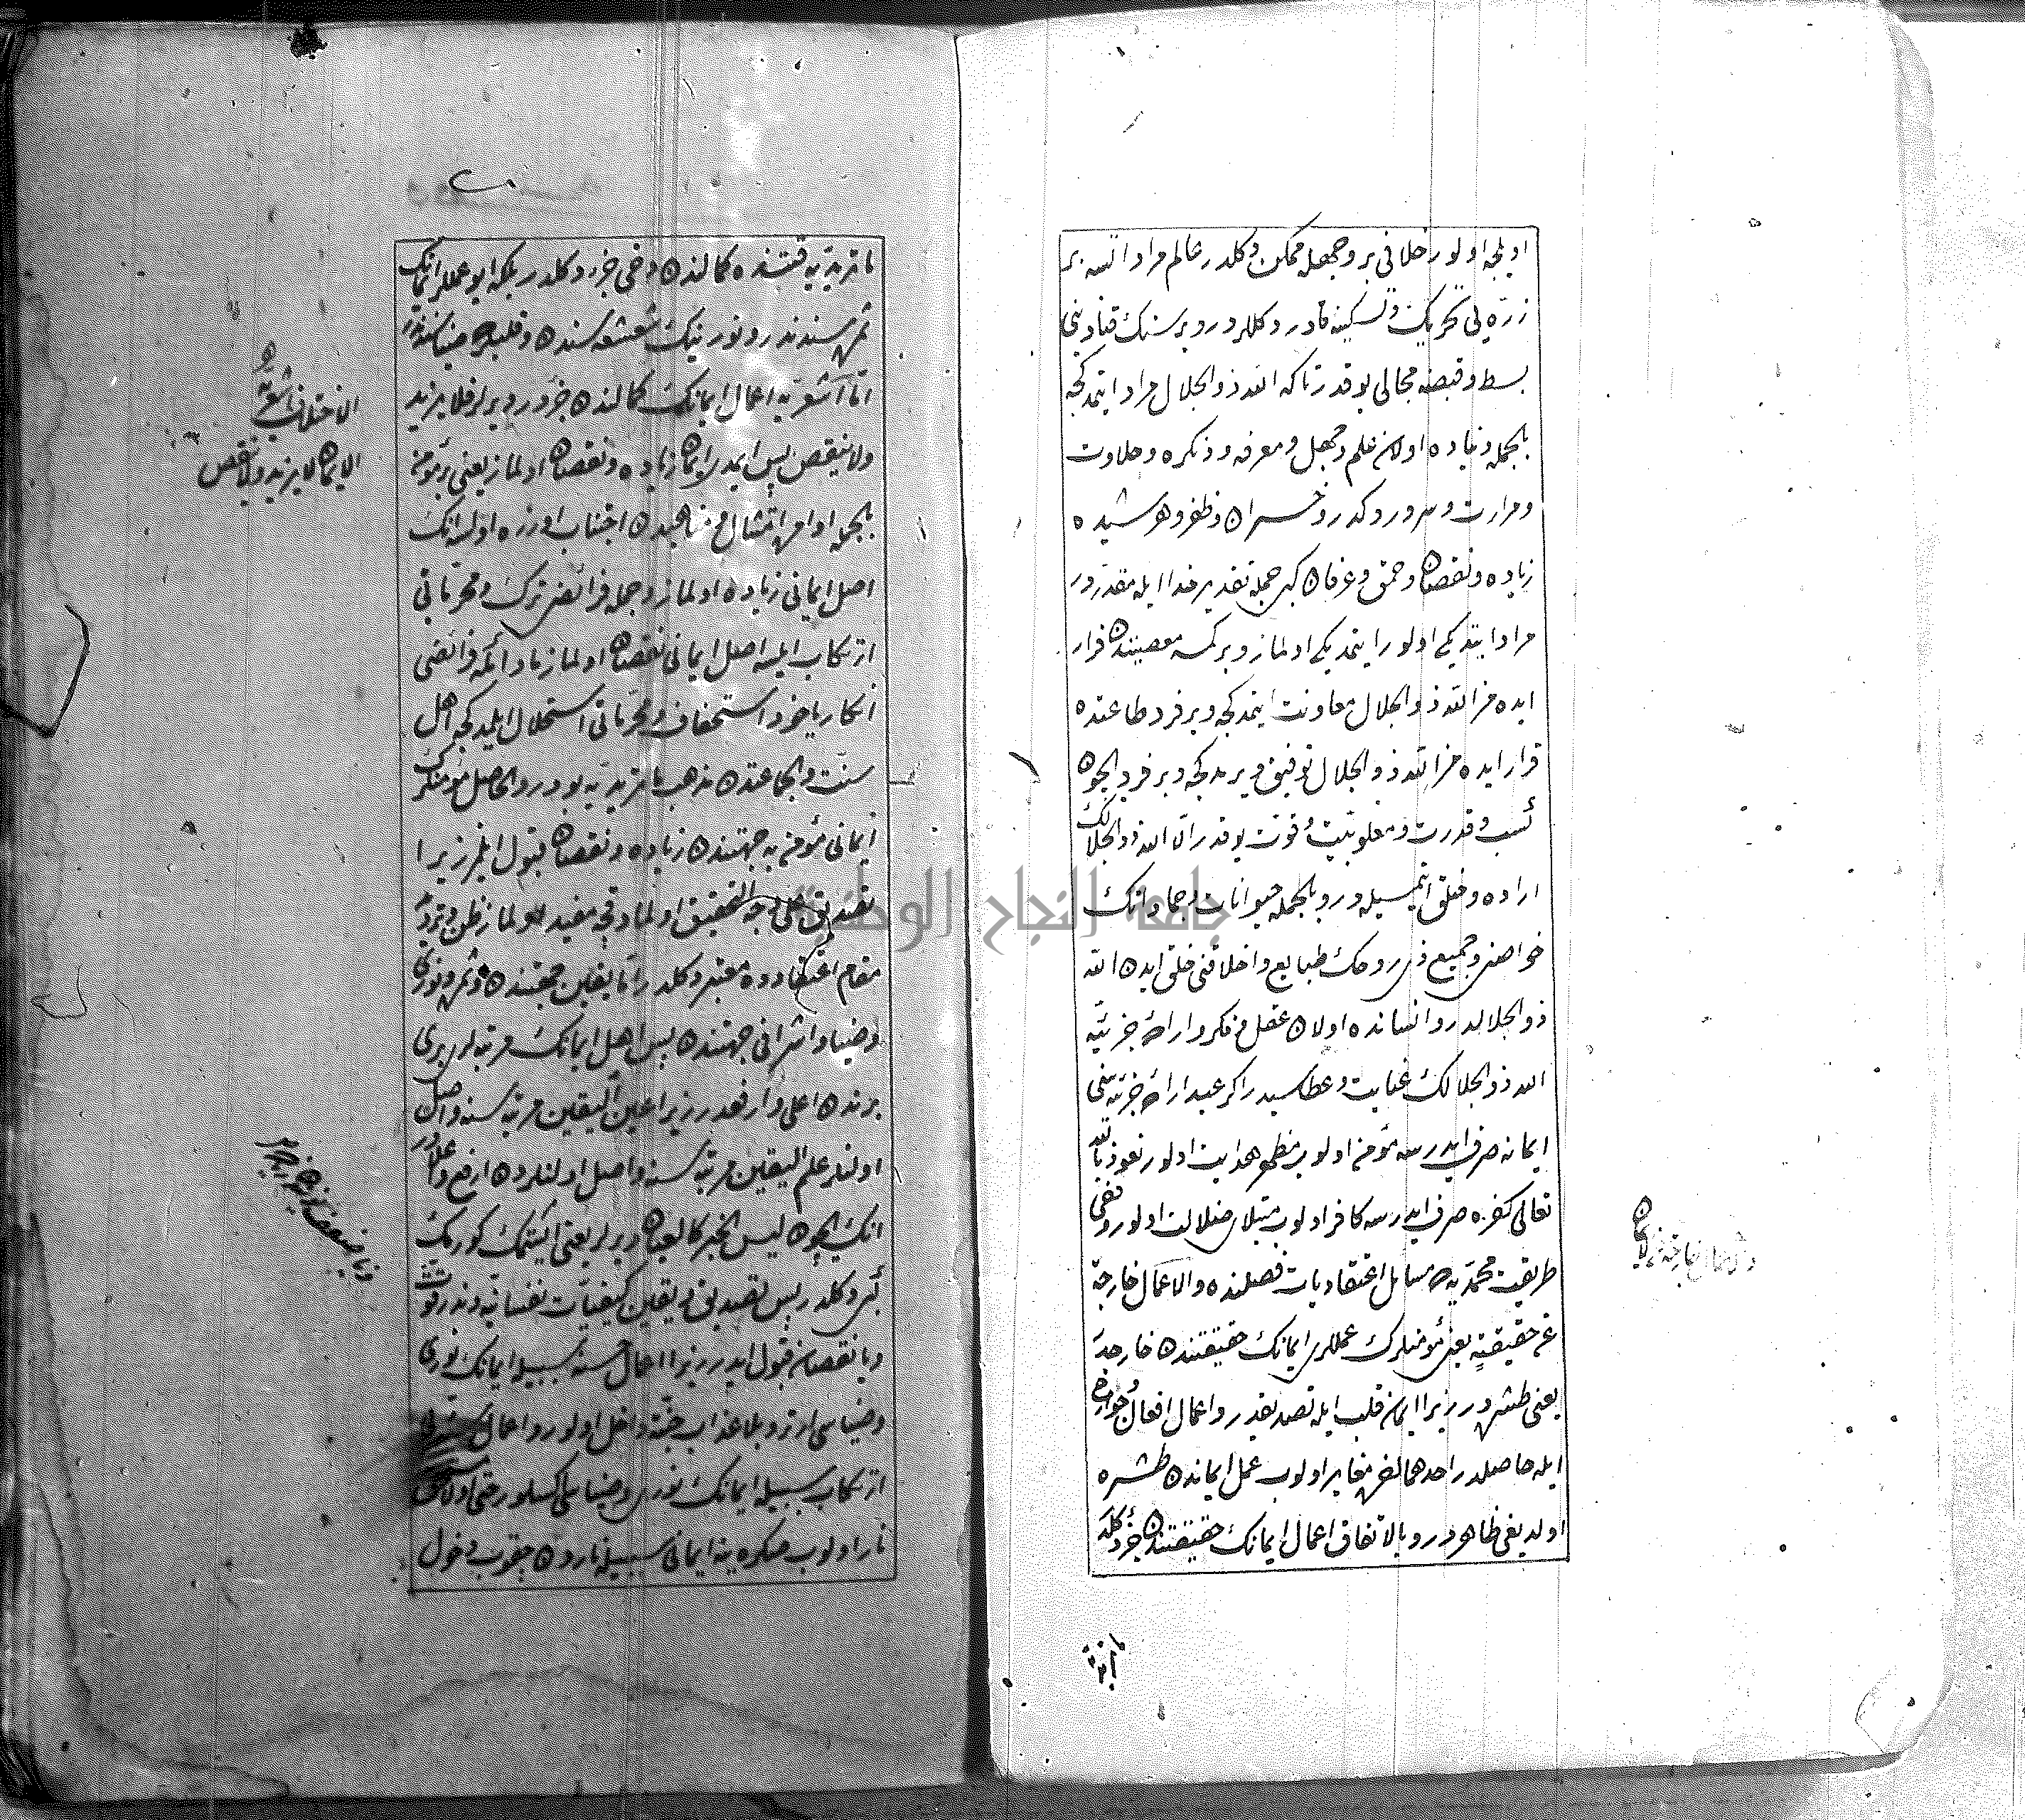 اویله اولور خلافی بر وجهله ممکن دکلدر عالم مراد اتسه بر
ذره یی تحریک و تسکینه قادر دکللردر و بر سنک قنادینی
بسط و قبضه مجالی یوقدر تاکه الله ذو الجلال مراد ایتمدکجه
بالجمله دنیاده اولان علم و جهل و معرفه و ذکره و حلاوت
و مرارت و سرور و کدر و خسران و ظفر و هر شیده
زیاده و نقصان و حمق و عرفان کبی جمله تقدیر خدا ایله مقدردر
مراد ایتدیکی اولور ایتمدیکی اولماز و بر کمسه معصیتدن فرار
ایده مز الله ذو الجلال معاونت ایتمدکجه و بر فرد طاعتده
قرار ایده مز الله ذو الجلال توفیق ویرمدکجه و بر فرد ایچون
کسب و قدرت و معلوبیت و قوت یوقدر الا الله ذو الجلالک
اراده و خلق ایتمسیله در و بالجمله حیوانات و جماداتک
خواصنی و جمیع ذی روحک طبایع و اخلاقنی خلق ایدن الله
ذو الجلالدر و انسانده اولان عقل و فکر و اراده جزئیه
الله ذو الجلالک عنایت و عطاسیدر اکر عبد اراده جزئیه سنی
ایمانه صرف ایدرسه مؤمن اولوب مظهر هدایت اولور نعوذ بالله
تعالی کفره صرف ایدرسه کافر اولوب مبتلای ضلالت اولور و دخی
طریقت محمدیه ده مسائل اعتقادیات فصلنده والاعمال خارجة
عن حقیقته یعنی مؤمنلرک عمللری ایمانک حقیقتندن خارجه
یعنی طشره در زیرا ایمان قلب ایله تصدیقدر و اعمال افعال جوارح
ایله حاصلدر احدهما الآخره مغایر اولوب عمل ایماندن طشره
اولدیغی ظاهردر و بالاتفاق اعمال ایمانک حقیقتندن جزء دکلدر
ماتریدیه
ماتریدیه قتنده کمالندن دخی جزء دکلدر بلکه ایو عمللر ایمانک
ثمره سندندر و نورینک شعشعه سندن و قلبده ضیاسندندر
اما اشعریه اعمال ایمانک کمالندن جزؤدر دیرلر فلا یزید
ولا ینقص پس ایمدی ایمان زیاده و نقصان اولماز یعنی بر مؤمن
بالجمله اوامره امتثال و مناهیدن اجتناب اوزره اولسه انک
اصل ایمانی زیاده اولماز و جمله فرائضی ترک و محرماتی
ارتکاب ایلسه اصل ایمانی نقصان اولماز مادامکه فرائضی
انکار یاخود استخفاف و محرماتی استحلال ایلمدکجه اهل
سنت والجماعتدن مذهب ماتریدیه بودر والحاصل مؤمنلرک
ایمانی مؤمن به جهتندن زیاده و نقصان قبول ایلمز زیرا
تصدیق علی وجه التحقیق اولمادقجه مفید اولماز ظن و تردد
مقام اعتقادده معتبر دکلدر اما یقین جهتندن و ثمره و نوری
و ضیا و اشراقی جهتندن پس اهل ایمانک مرتبه لری بری
برندن اعلی و ارفعدر زیرا عین الیقین مرتبه سنه واصل
اولنلر علم الیقین مرتبه سنه واصل اولنلردن ارفع و اعلادر
انک ایچون لیس الخبر کالعیان دیرلر یعنی ایشتمک کورمک
کبی دکلدر پس تصدیق و یقین کیفیات نفسانیه دندر قوت
و یا نقصان قبول ایدر زیرا اعمال حسنه سببیله ایمانک نوری
و ضیاسی ارتر و بلا عذاب جنته داخل اولور و اعمال
ارتکاب سببیله ایمانک نوری و ضیاسی اکسلور حتی
نار اولوب صکره ینه ایمانی سببیله ناردن چقوب دخول
الاختلاف اشعریه
الایمان لا یزید ولا ینقص